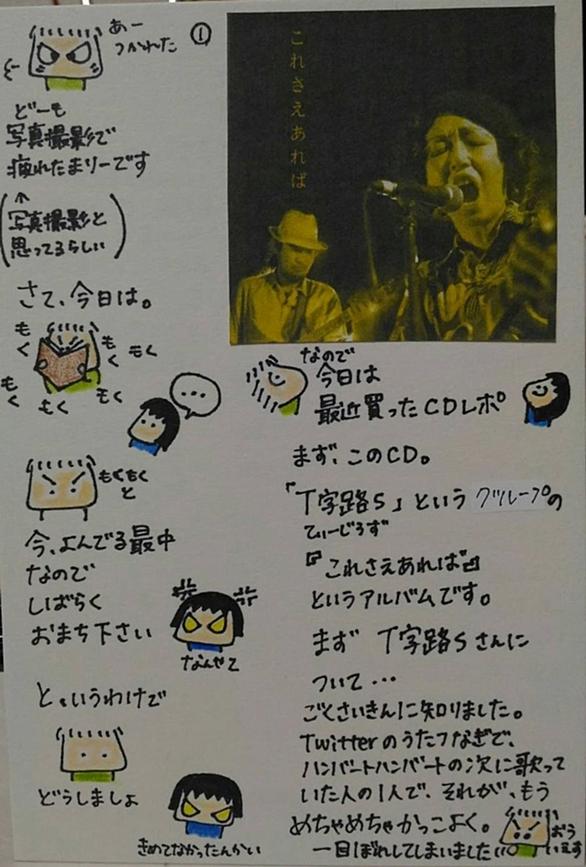 ①
あー
つかれた
どーも
写真撮影で
疲れたまリーです
↑
写真撮影と
思ってるらしい
さて、今日は。
もく
もく
もく
もく
もく
もく
…
もくもく
と
今、よんでる最中
なので
しばらく
おまち下さい
なんやて
と、いうわけで
どうしましょ
きめてなかったんかい
これさえあれば
なので
今日は
最近買ったCDレポ
まず、このCD。
「T字路s」という グループの
てぃーじろず
『これさえあれば』
というアルバムです。
まず T字路sさんに
ついて…
ごくさいきんに知りました。
Twitterのうたつなぎで、
ハンバートハンバートの次に歌って
いた人の1人で、それが、もう
めちゃめちゃかっこよく。
一目ぼれしてしまいました